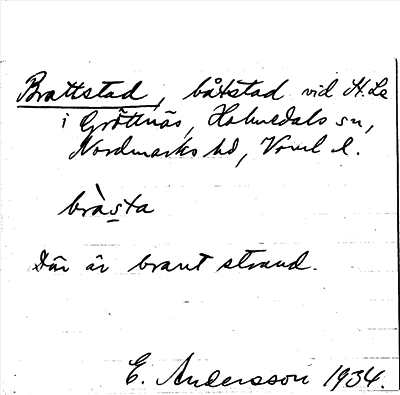 Brattstad, båtstad vid H. Le
i Gröttnäs, Holmedals sn,
Nordmarks hd, Vrml. l.
bràs̲ta
Där är brant strand.
E. Andersson 1934.